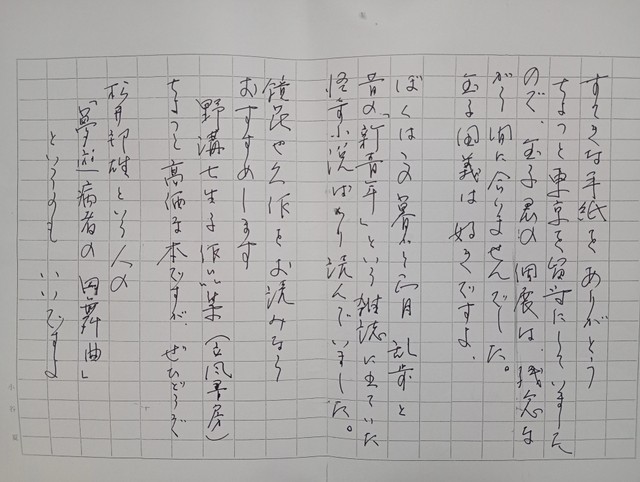 すてきな手紙をありがとう
ちょっと東京を留守にしていました
ので、金子君の個展は、残念な
がら間に合いませんでした。
金子國義は好きですよ。
ぼくはこの暮から正月 乱歩と
昔の「新青年」という雑誌に出ていた
怪奇小説ばかり読んでいました。
鏡花や久作をお読みなら
おすすめします
野溝七生子作品集(立風書房)
ちょっと高価な本ですが、ぜひどうぞ
松永延雄という人の
「夢遊病者の円舞曲」
というのも いいですよ
小